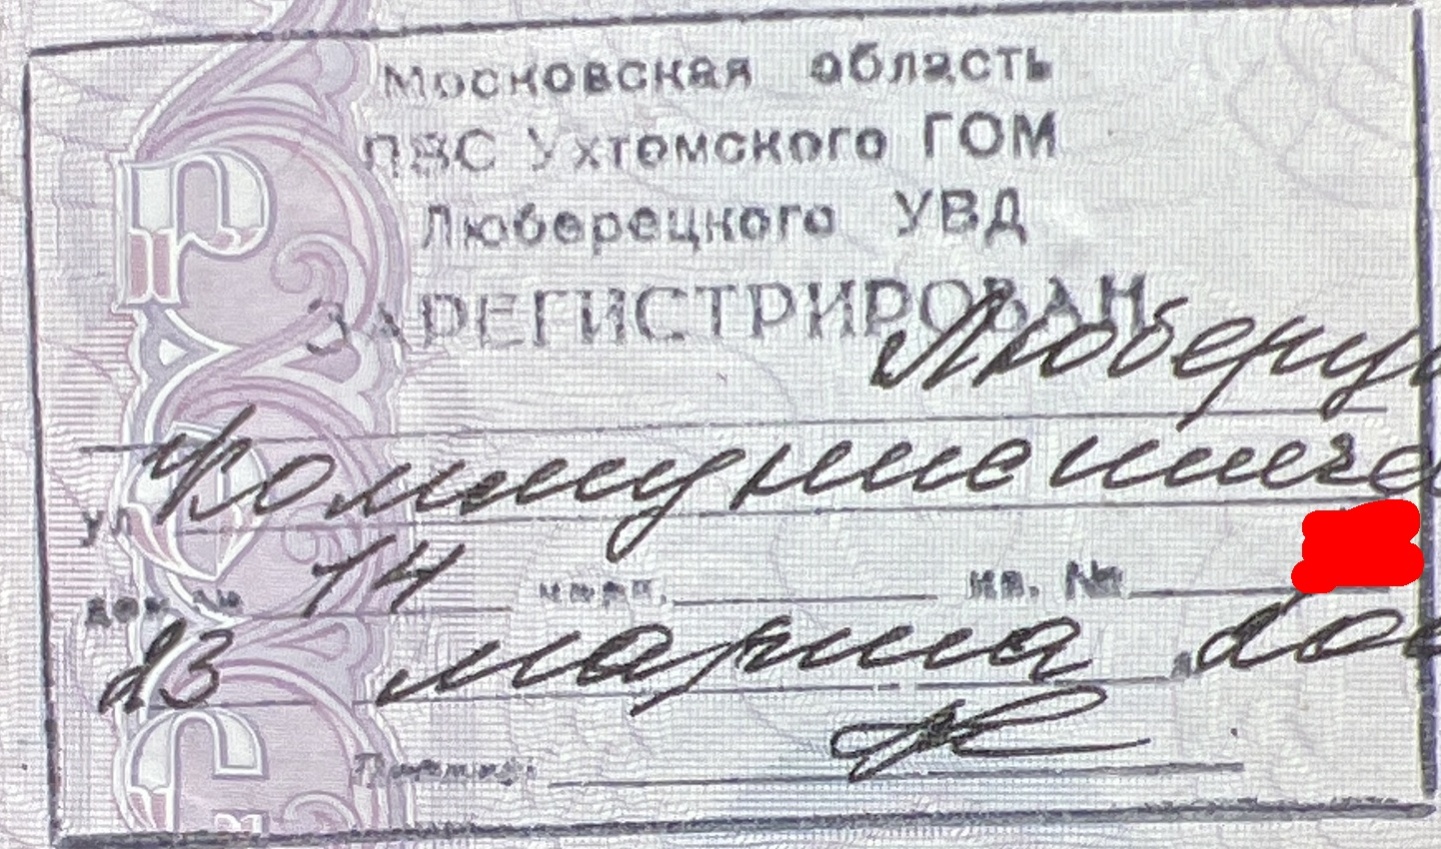 Московская область
ПВС Ухтомского ГОМ
Люберецкого УВД
ЗАРЕГИСТРИРОВАН
Люберцы
ул. Коммунистичес
дом № 14 корп. кв. №
23 марта 200
Подпись: